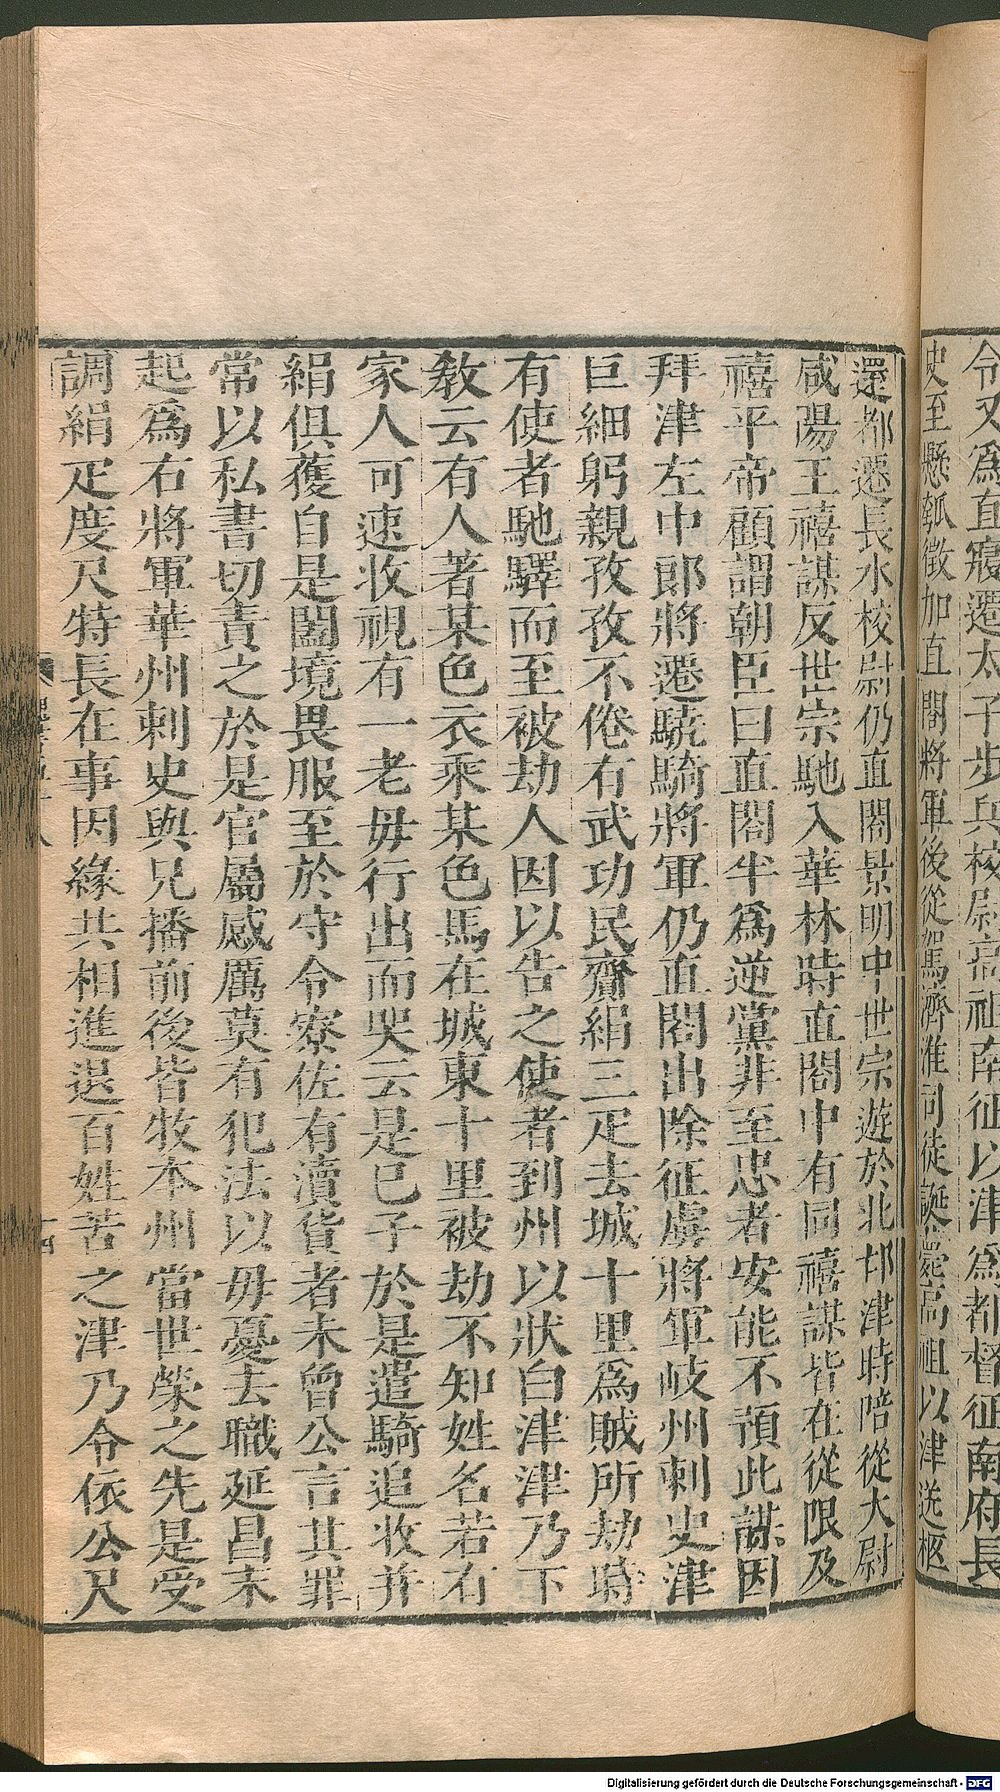 令又爲直寢遷太子步兵校尉高祖南征以津爲都督征南府長
史至懸瓠徵加直閤將軍後從駕濟淮司徒誕薨高祖以津送柩
還都遷長水校尉仍直閤景明中世宗遊於北邙津時陪從大尉
咸陽王禧謀反世宗馳入華林時直閤中有同禧謀皆在從限及
禧平帝顧謂朝臣曰直閤半爲逆黨非至忠者安能不預此謀因
拜津左中郎將遷驍騎將軍仍直閤出除征虜將軍岐州刺史津
巨細躬親孜孜不倦有武功民齎絹三疋去城十里爲賊所劫時
有使者馳驛而至被劫人因以告之使者到州以狀白津津乃下
敎云有人著某色衣乘某色馬在城東十里被劫不知姓名若有
家人可速收視有一老毋行出而哭云是已子於是遣騎追收并
絹俱獲自是闔境畏服至於守令寮佐有瀆貨者未曾公言其罪
常以私書切責之於是官屬感厲莫有犯法以毋憂去職延昌末
起爲右將軍華州刺史與兄播前後皆牧本州當世榮之先是受
調絹疋度尺特長在事因緣共相進退百姓苦之津乃令依公尺
十四
Digitalisierung gefördert durch die Deutsche Forschungsgemeinschaft - DFG